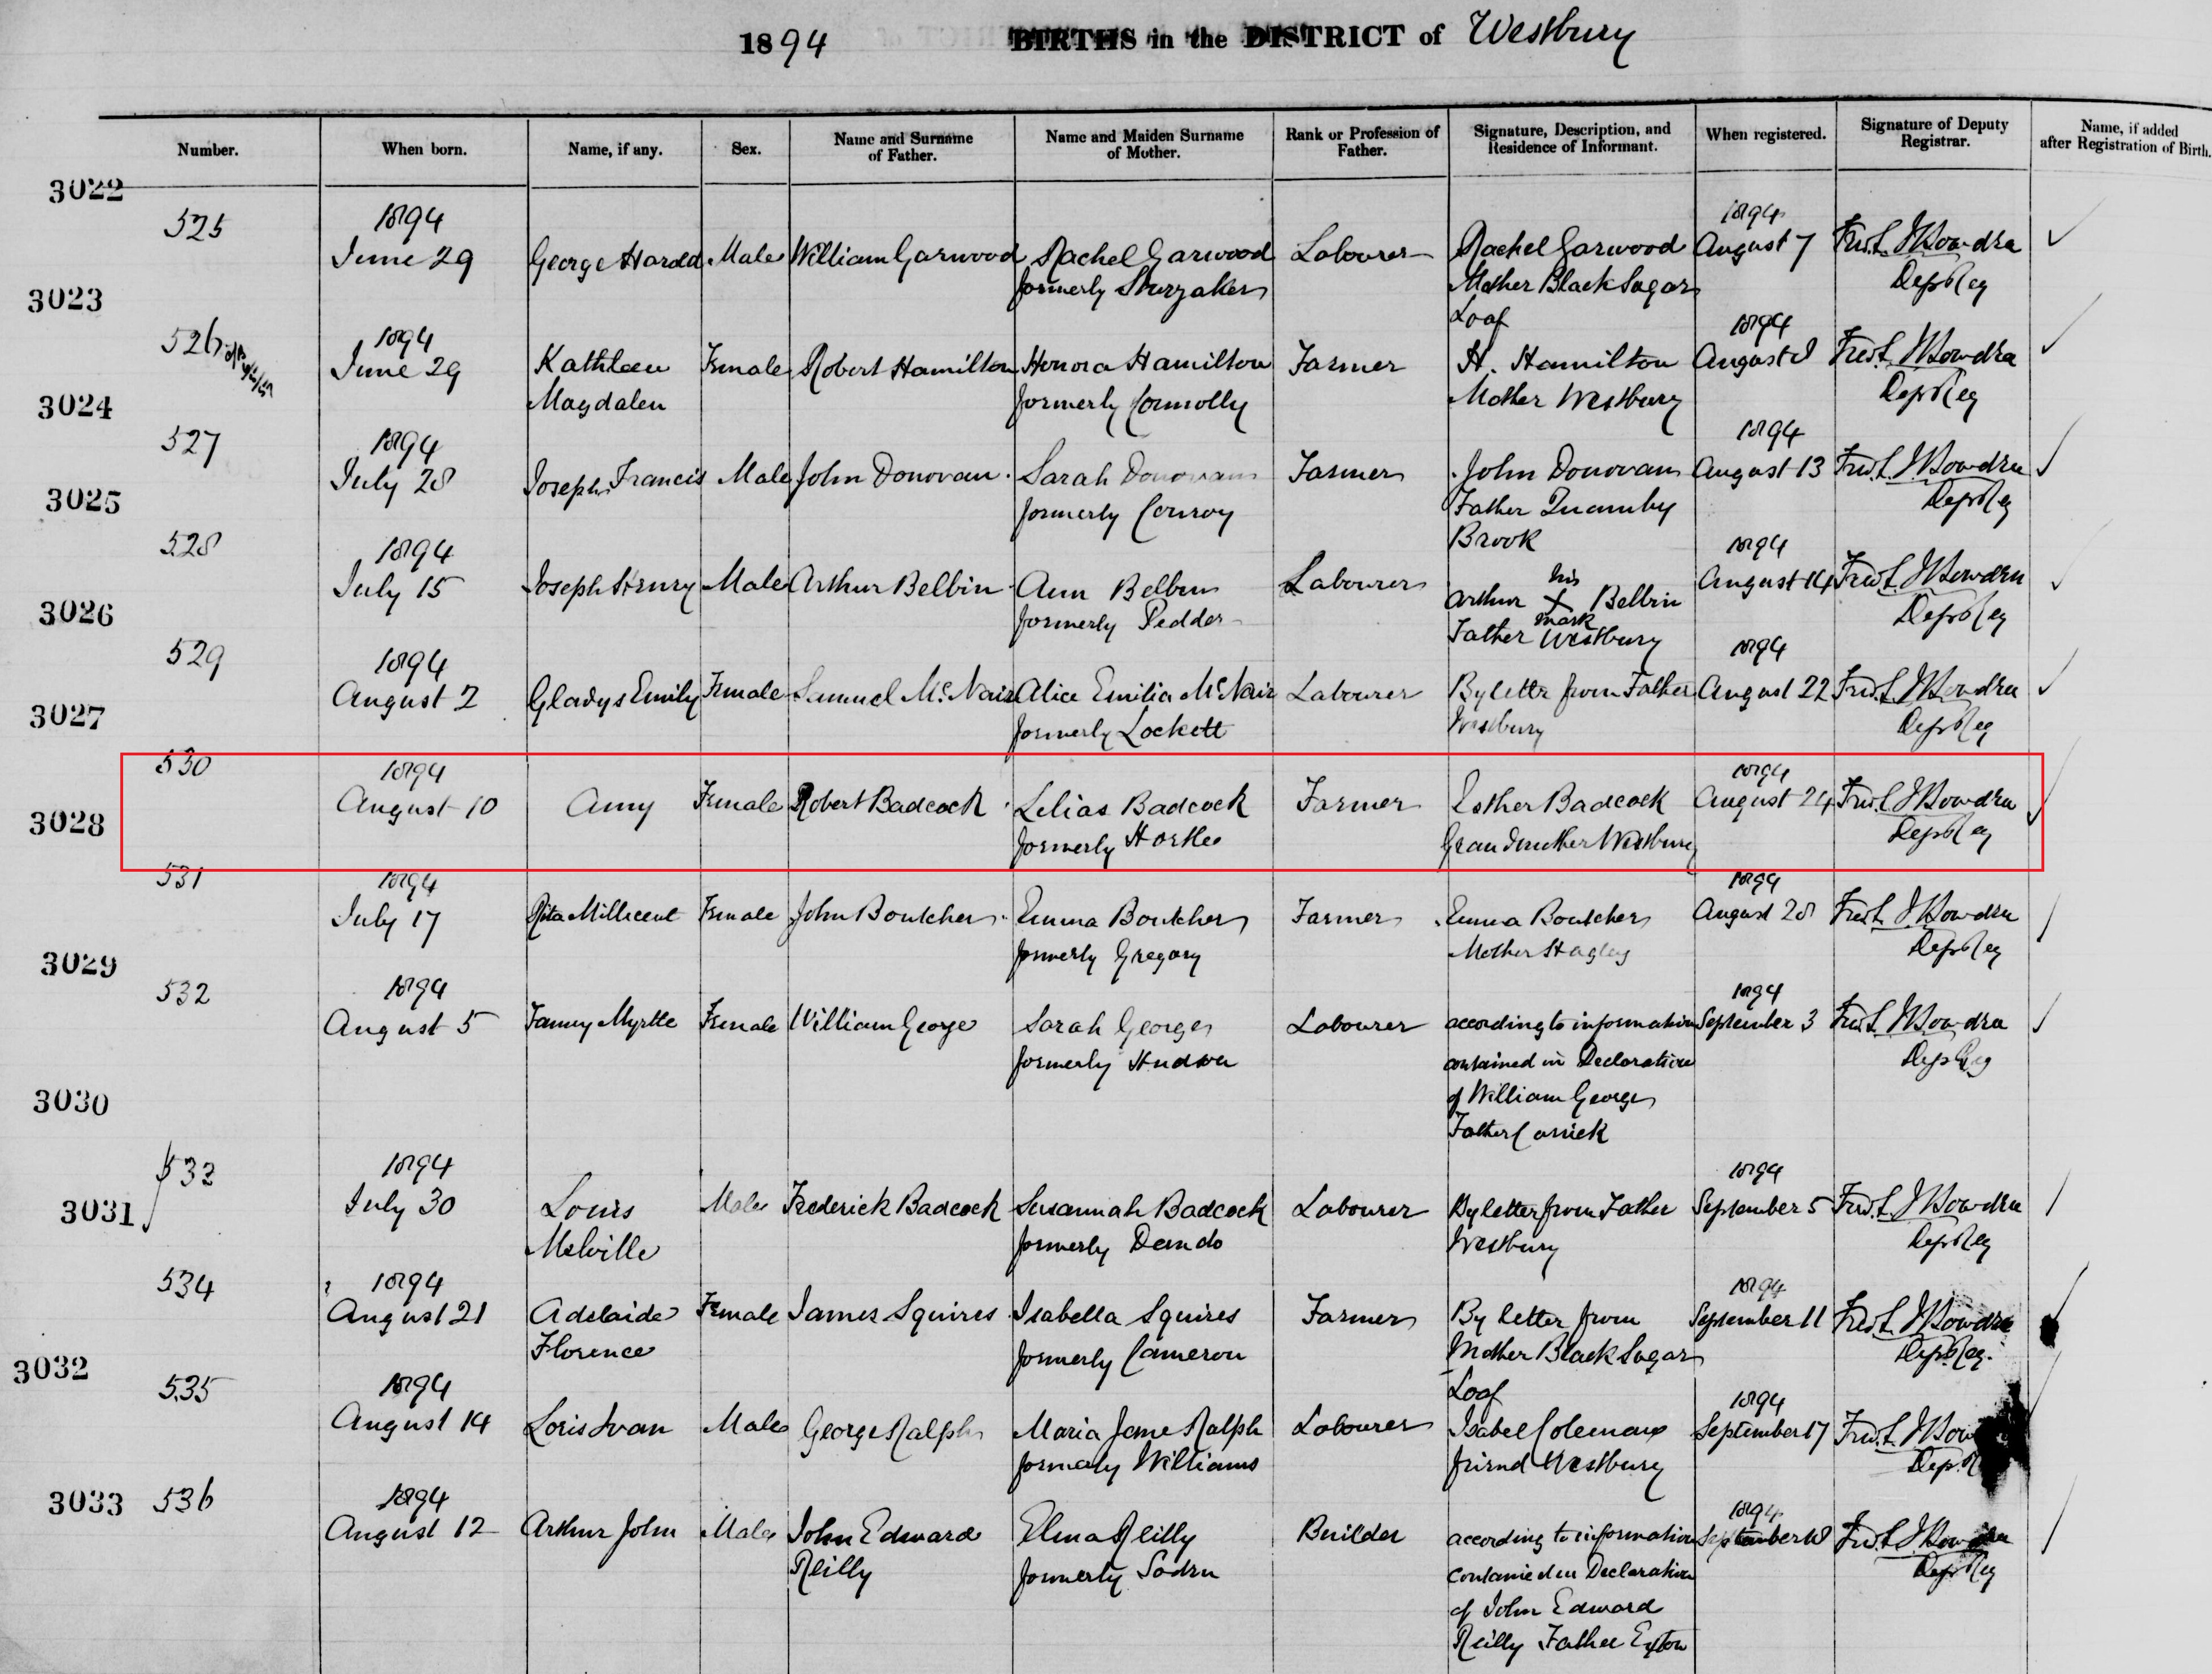 1894 BIRTHS in the DISTRICT of Westbury
Number. When born. Name, if any. Sex. Name and Surname of Father. Name and Maiden Surname of Mother. Rank or Profession of Father. Signature, Description, and Residence of Informant. When registered. Signature of Deputy Registrar. Name, if added after Registration of Birth.
3022
525 1894 1894
June 29 George Harold Male William Garwood Rachel Garwood Labourer Rachel Garwood August 7
formerly Sturzaker Mother Black Sugar Dep Reg
3023 Loaf
526 1894 1894
June 29 Kathleen Female Robert Hamilton Honora Hamilton Farmer H. Hamilton August
Magdalen formerly Connolly Mother Westbury Dep Reg
3024
527 1894 1894
July 28 Joseph Francis Male John Donovan Sarah Donovan Farmer John Donovan August 13
formerly Conroy Father Quamby Dep Reg
3025 Brook
528 1894 1894
July 15 Joseph Henry Male Arthur Belbin Ann Belbin Labourer his August 14
Arthur X Belbin
formerly Pedder mark Dep Reg
3026 Father Westbury
529 1894 1894
August 2 Gladys Emily Female Samuel McNair Alice Emilia McNair Labourer By letter from Father August 22
formerly Lockett Westbury Dep Reg
3027
530 1894 1894
August 10 Amy Female Robert Badcock Lilias Badcock Farmer Esther Badcock August 24
3028 formerly Grandmother Westbury Dep Reg
531 1894 1894
July 17 Rita Millicent Female John Boutcher Emma Boutcher Farmer Emma Boutcher August 28
formerly Gregory Mother Hagley Dep Reg
3029
532 1894 1894
August 5 Fanny Myrtle Female William George Sarah George Labourer according to information September 3
formerly Hudson contained in Declaration Dep Reg
of William George
3030 Father Carrick
533 1894 1894
3031 July 30 Louis Male Frederick Badcock Susannah Badcock Labourer By letter from Father September 5
Melville formerly Westbury Dep Reg
534 1894 1894
August 21 Adelaide Female James Squires Isabella Squires Farmer By letter from September 11
Florence formerly Cameron Mother Black Sugar Dep Reg.
3032 Loaf
535 1894 1894
August 14 Loris Ivan Male George Ralph Maria Jane Ralph Labourer Isabel Coleman September 17
formerly Williams friend Westbury Dep
3033 536 1894 1894
August 12 Arthur John Male John Edward Elina Reilly Builder according to information September 18
Reilly formerly contained in Declaration Dep Reg
of John Edward
Reilly Father Exton